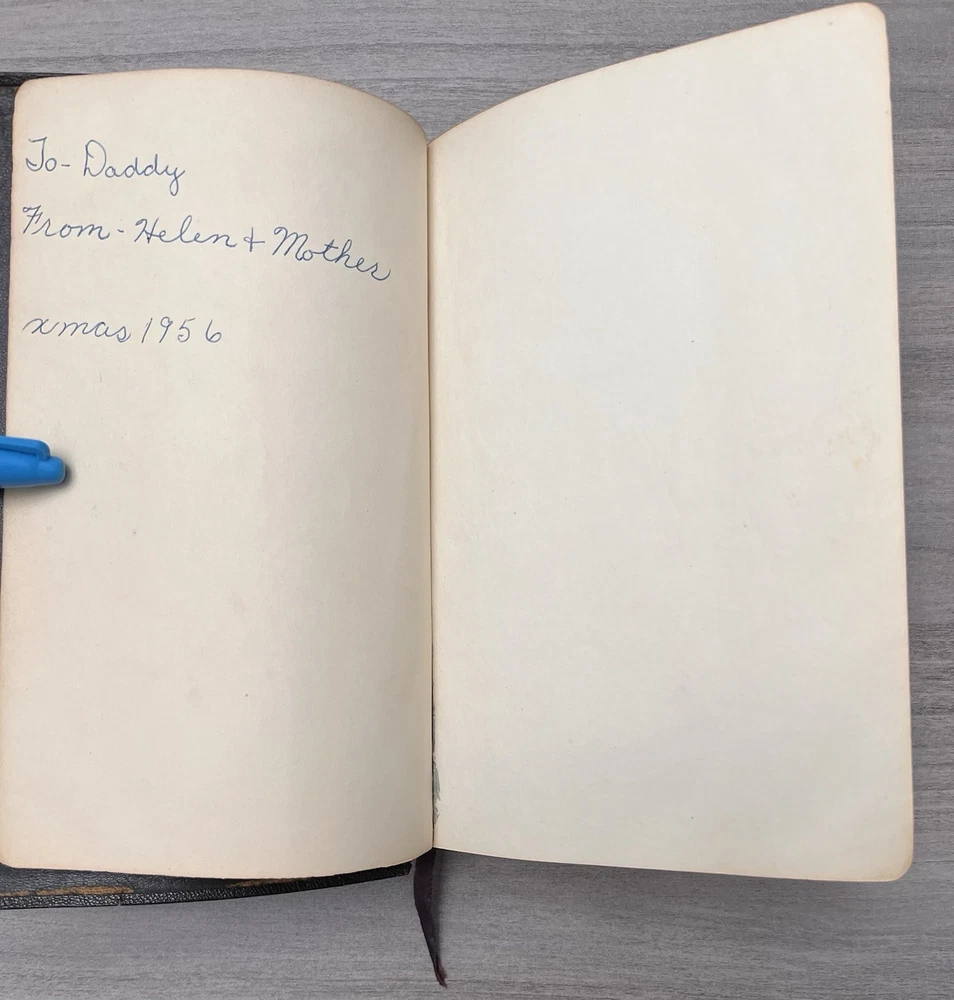 To- Daddy
From- Helen & Mother
xmas 1956